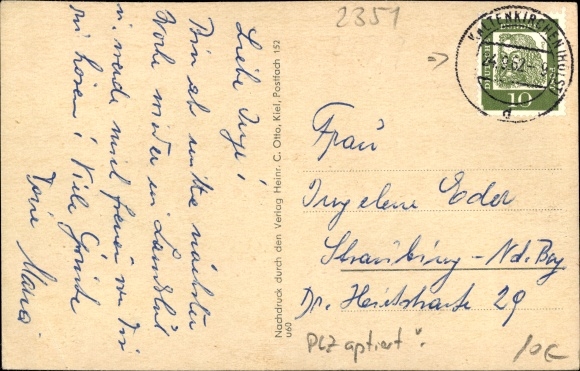 Liebe Inge!
Bin ab mitte nächster
Woche wieder in Landshut
u. werde mich freuen von Dir
zu hören! Viele Grüsse
Maria
Nachdruck durch den Verlag Heinr. C. Otto, Kiel, Postfach 152
u60
2351
KALTENKIRCHEN (HOLST)
24.9.62
d
10
Frau
Ingelene Eder
Straubing - Nd. Bay
Dr. Heistrasse 29
PLZ aptiert
10€